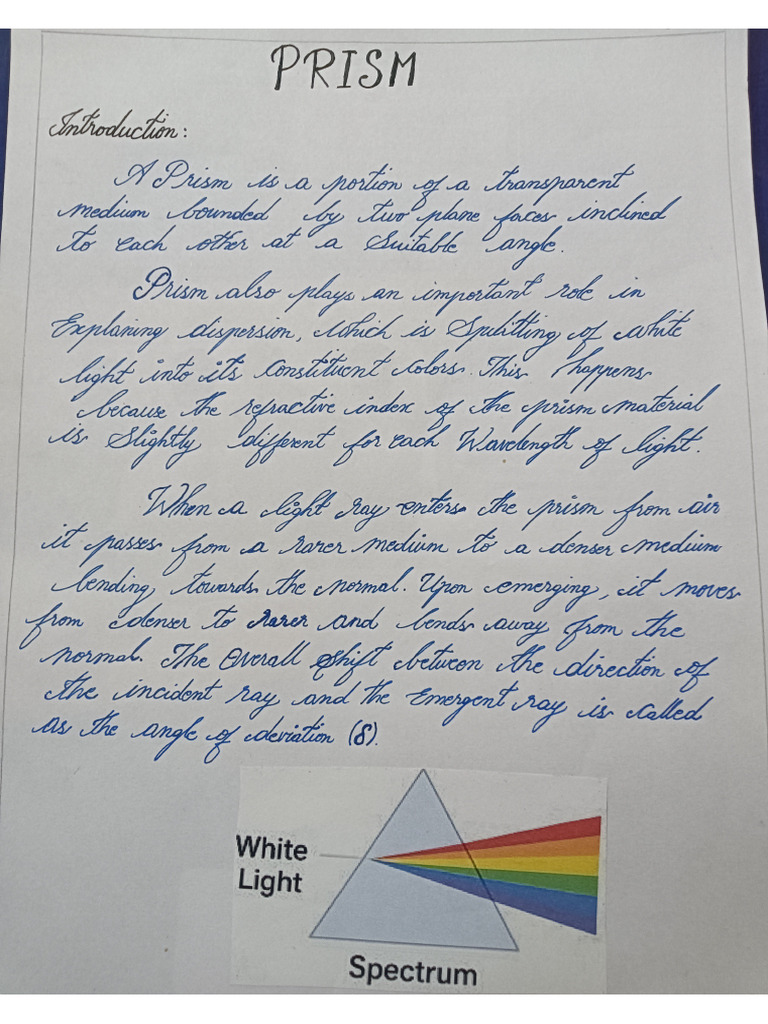 PRISM
Introduction:
A Prism is a portion of a transparent
medium bounded by two plane faces inclined
to each other at a Suitable angle.
Prism also plays an important role in
Explaning dispersion, which is Splitting of white
light into its Constituent Colors. This happens
because the refractive index of the prism material
is Slightly different for each Wavelength of light.
When a light ray enters the prism from air
it passes from a rarer medium to a denser medium
bending towards the normal. Upon emerging, it moves
from denser to rarer and bends away from the
normal. The Overall Shift between the direction of
the incident ray and the Emergent ray is called
as the angle of deviation (δ).
White
Light
Spectrum